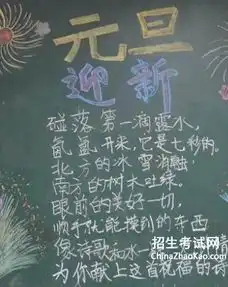 元旦
迎新
碰落第一滴露水,
氤氲开来,它是七秒的。
北方的冰雪消融
南方的树木吐绿,
眼前的美好一切,
顺手就能摸到的东西
像诗歌和水
为你献上这首祝福的诗
招生考试网
ChinaZhaoKao.com